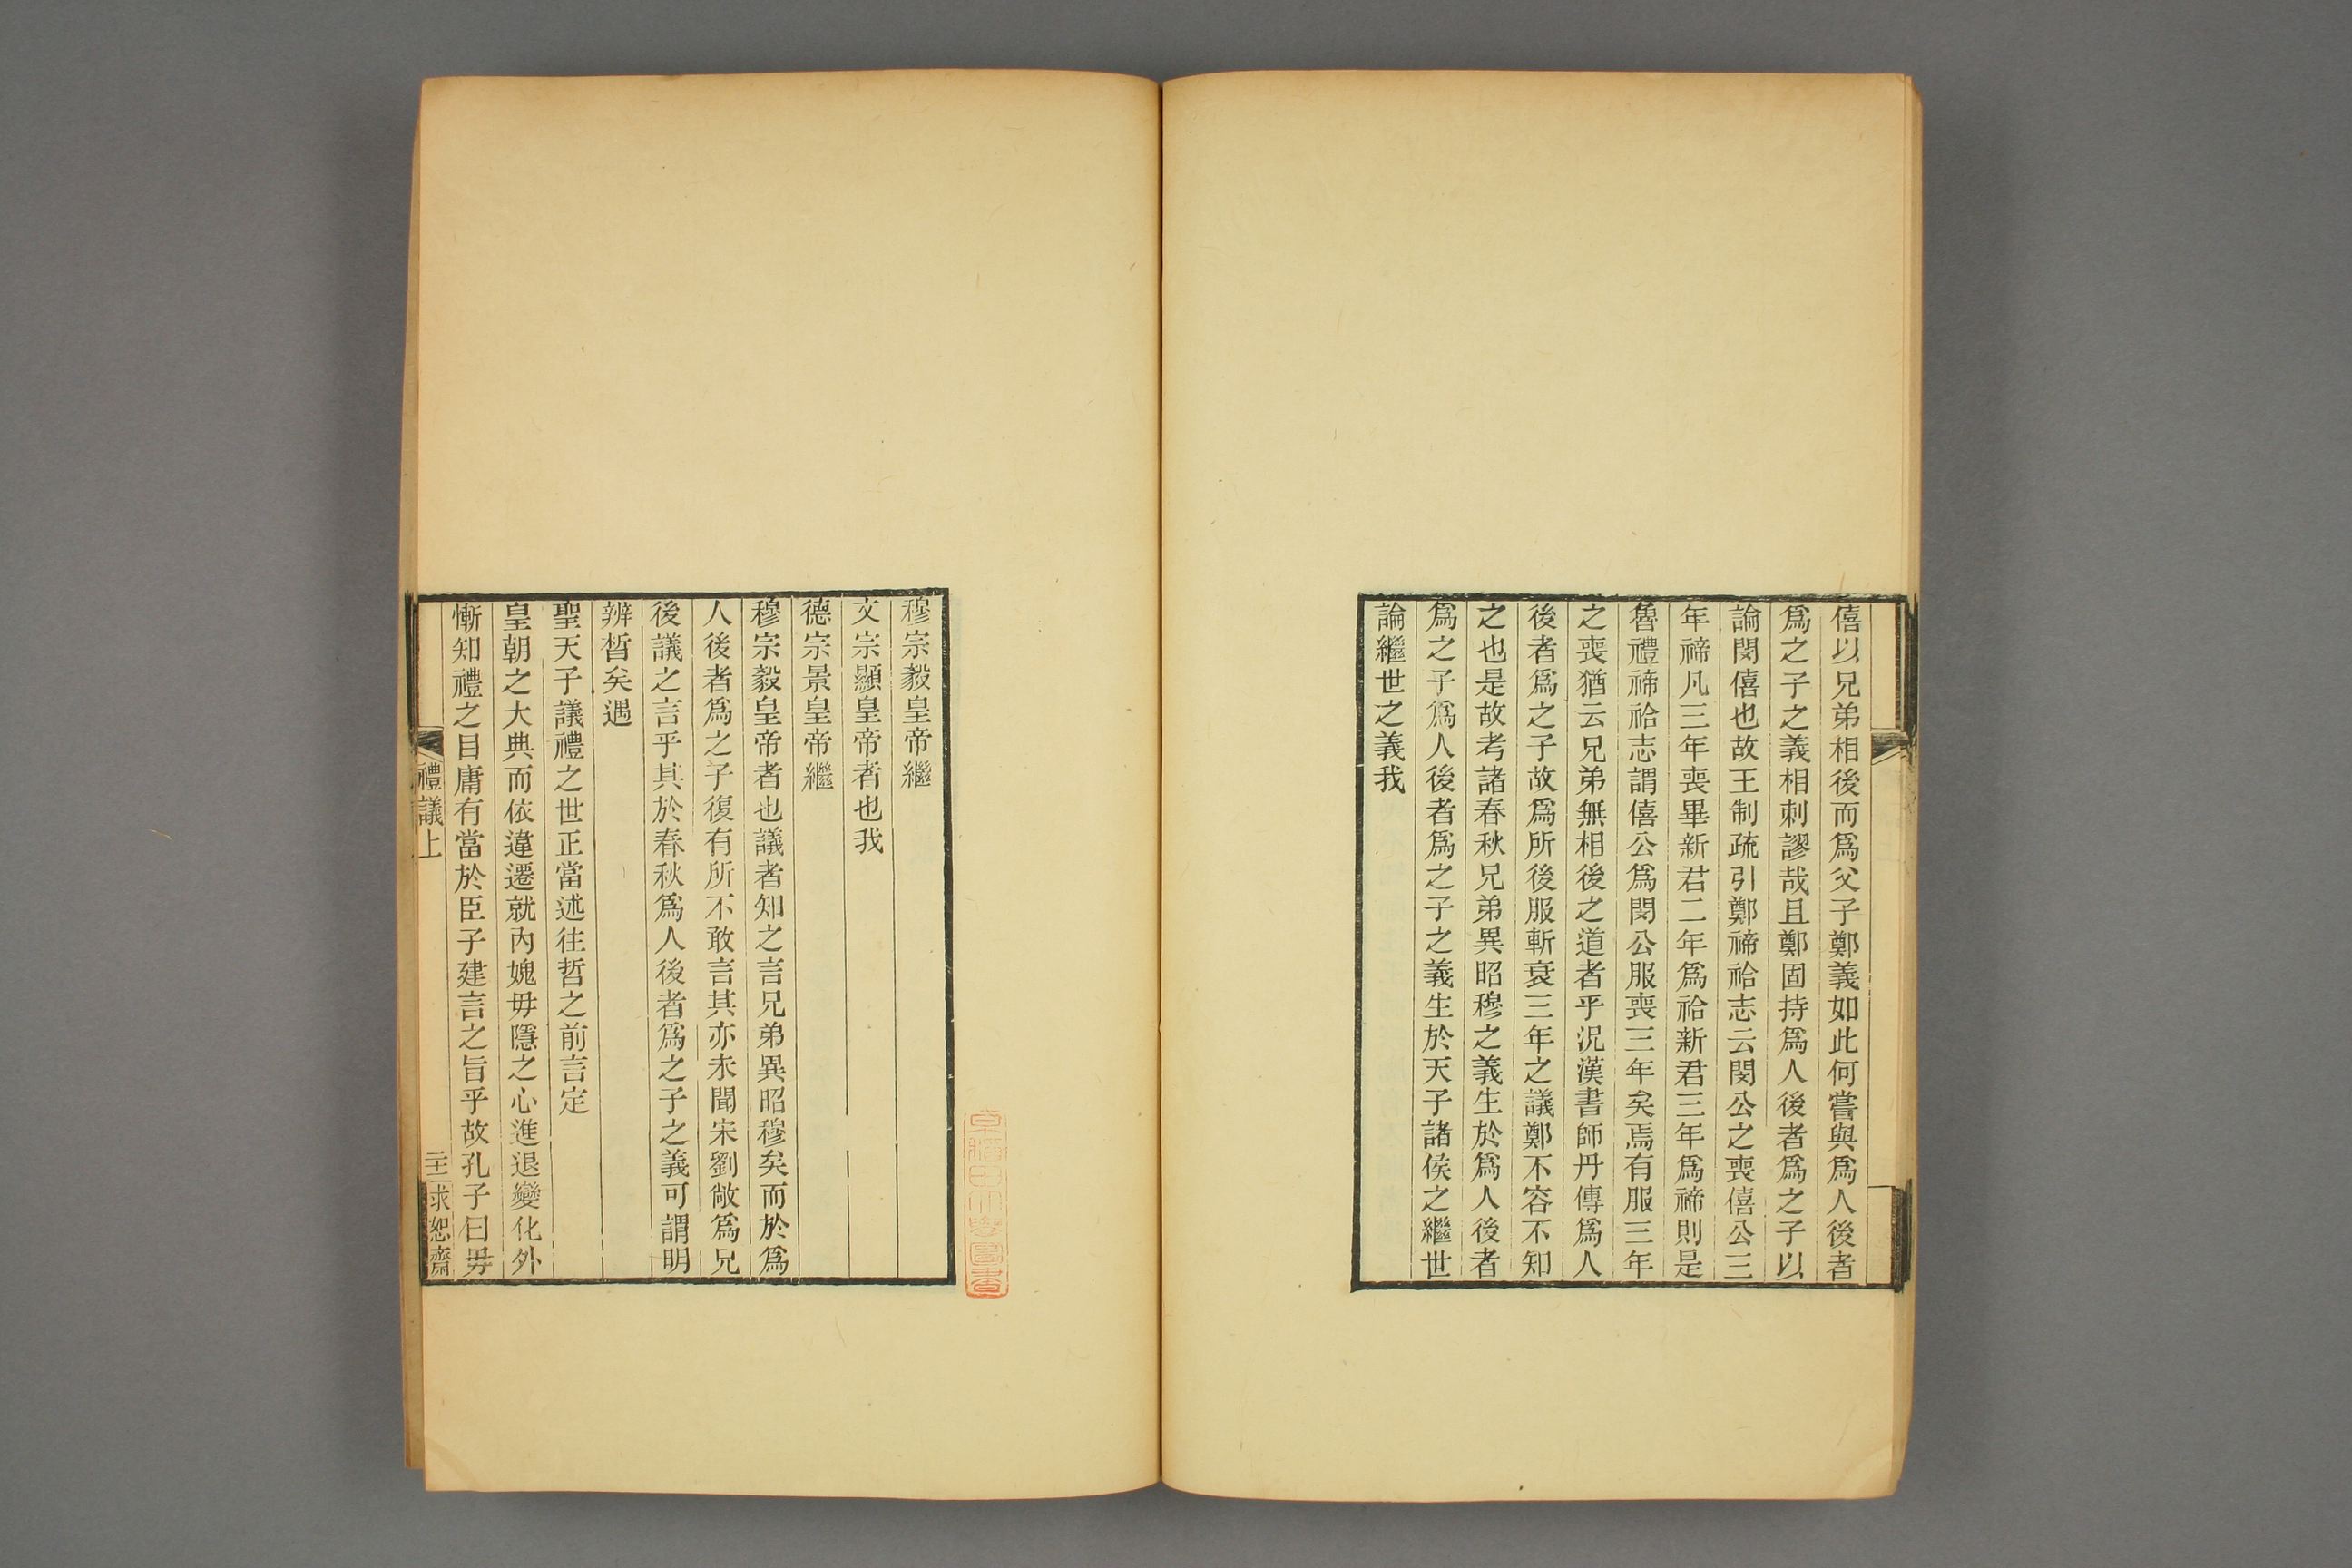 僖以兄弟相後而爲父子鄭義如此何嘗與爲人後者
爲之子之義相刺謬哉且鄭固持爲人後者爲之子以
論閔僖也故王制疏引鄭禘祫志云閔公之喪僖公三
年禘凡三年喪畢新君二年爲祫新君三年爲禘則是
魯禮禘祫志謂僖公爲閔公服喪三年矣焉有服三年
之喪猶云兄弟無相後之道者乎況漢書師丹傳爲人
後者爲之子故爲所後服斬衰三年之議鄭不容不知
之也是故考諸春秋兄弟異昭穆之義生於爲人後者
爲之子爲人後者爲之子之義生於天子諸侯之繼世
論繼世之義我
穆宗毅皇帝繼
文宗顯皇帝者也我
德宗景皇帝繼
穆宗毅皇帝者也議者知之言兄弟異昭穆矣而於爲
人後者爲之子復有所不敢言其亦未聞宋劉敞爲兄
後議之言乎其於春秋爲人後者爲之子之義可謂明
辨晳矣遇
聖天子議禮之世正當述往哲之前言定
皇朝之大典而依違遷就內媿毋隱之心進退變化外
慚知禮之目庸有當於臣子建言之旨乎故孔子曰毋
禮議上
求恕齋